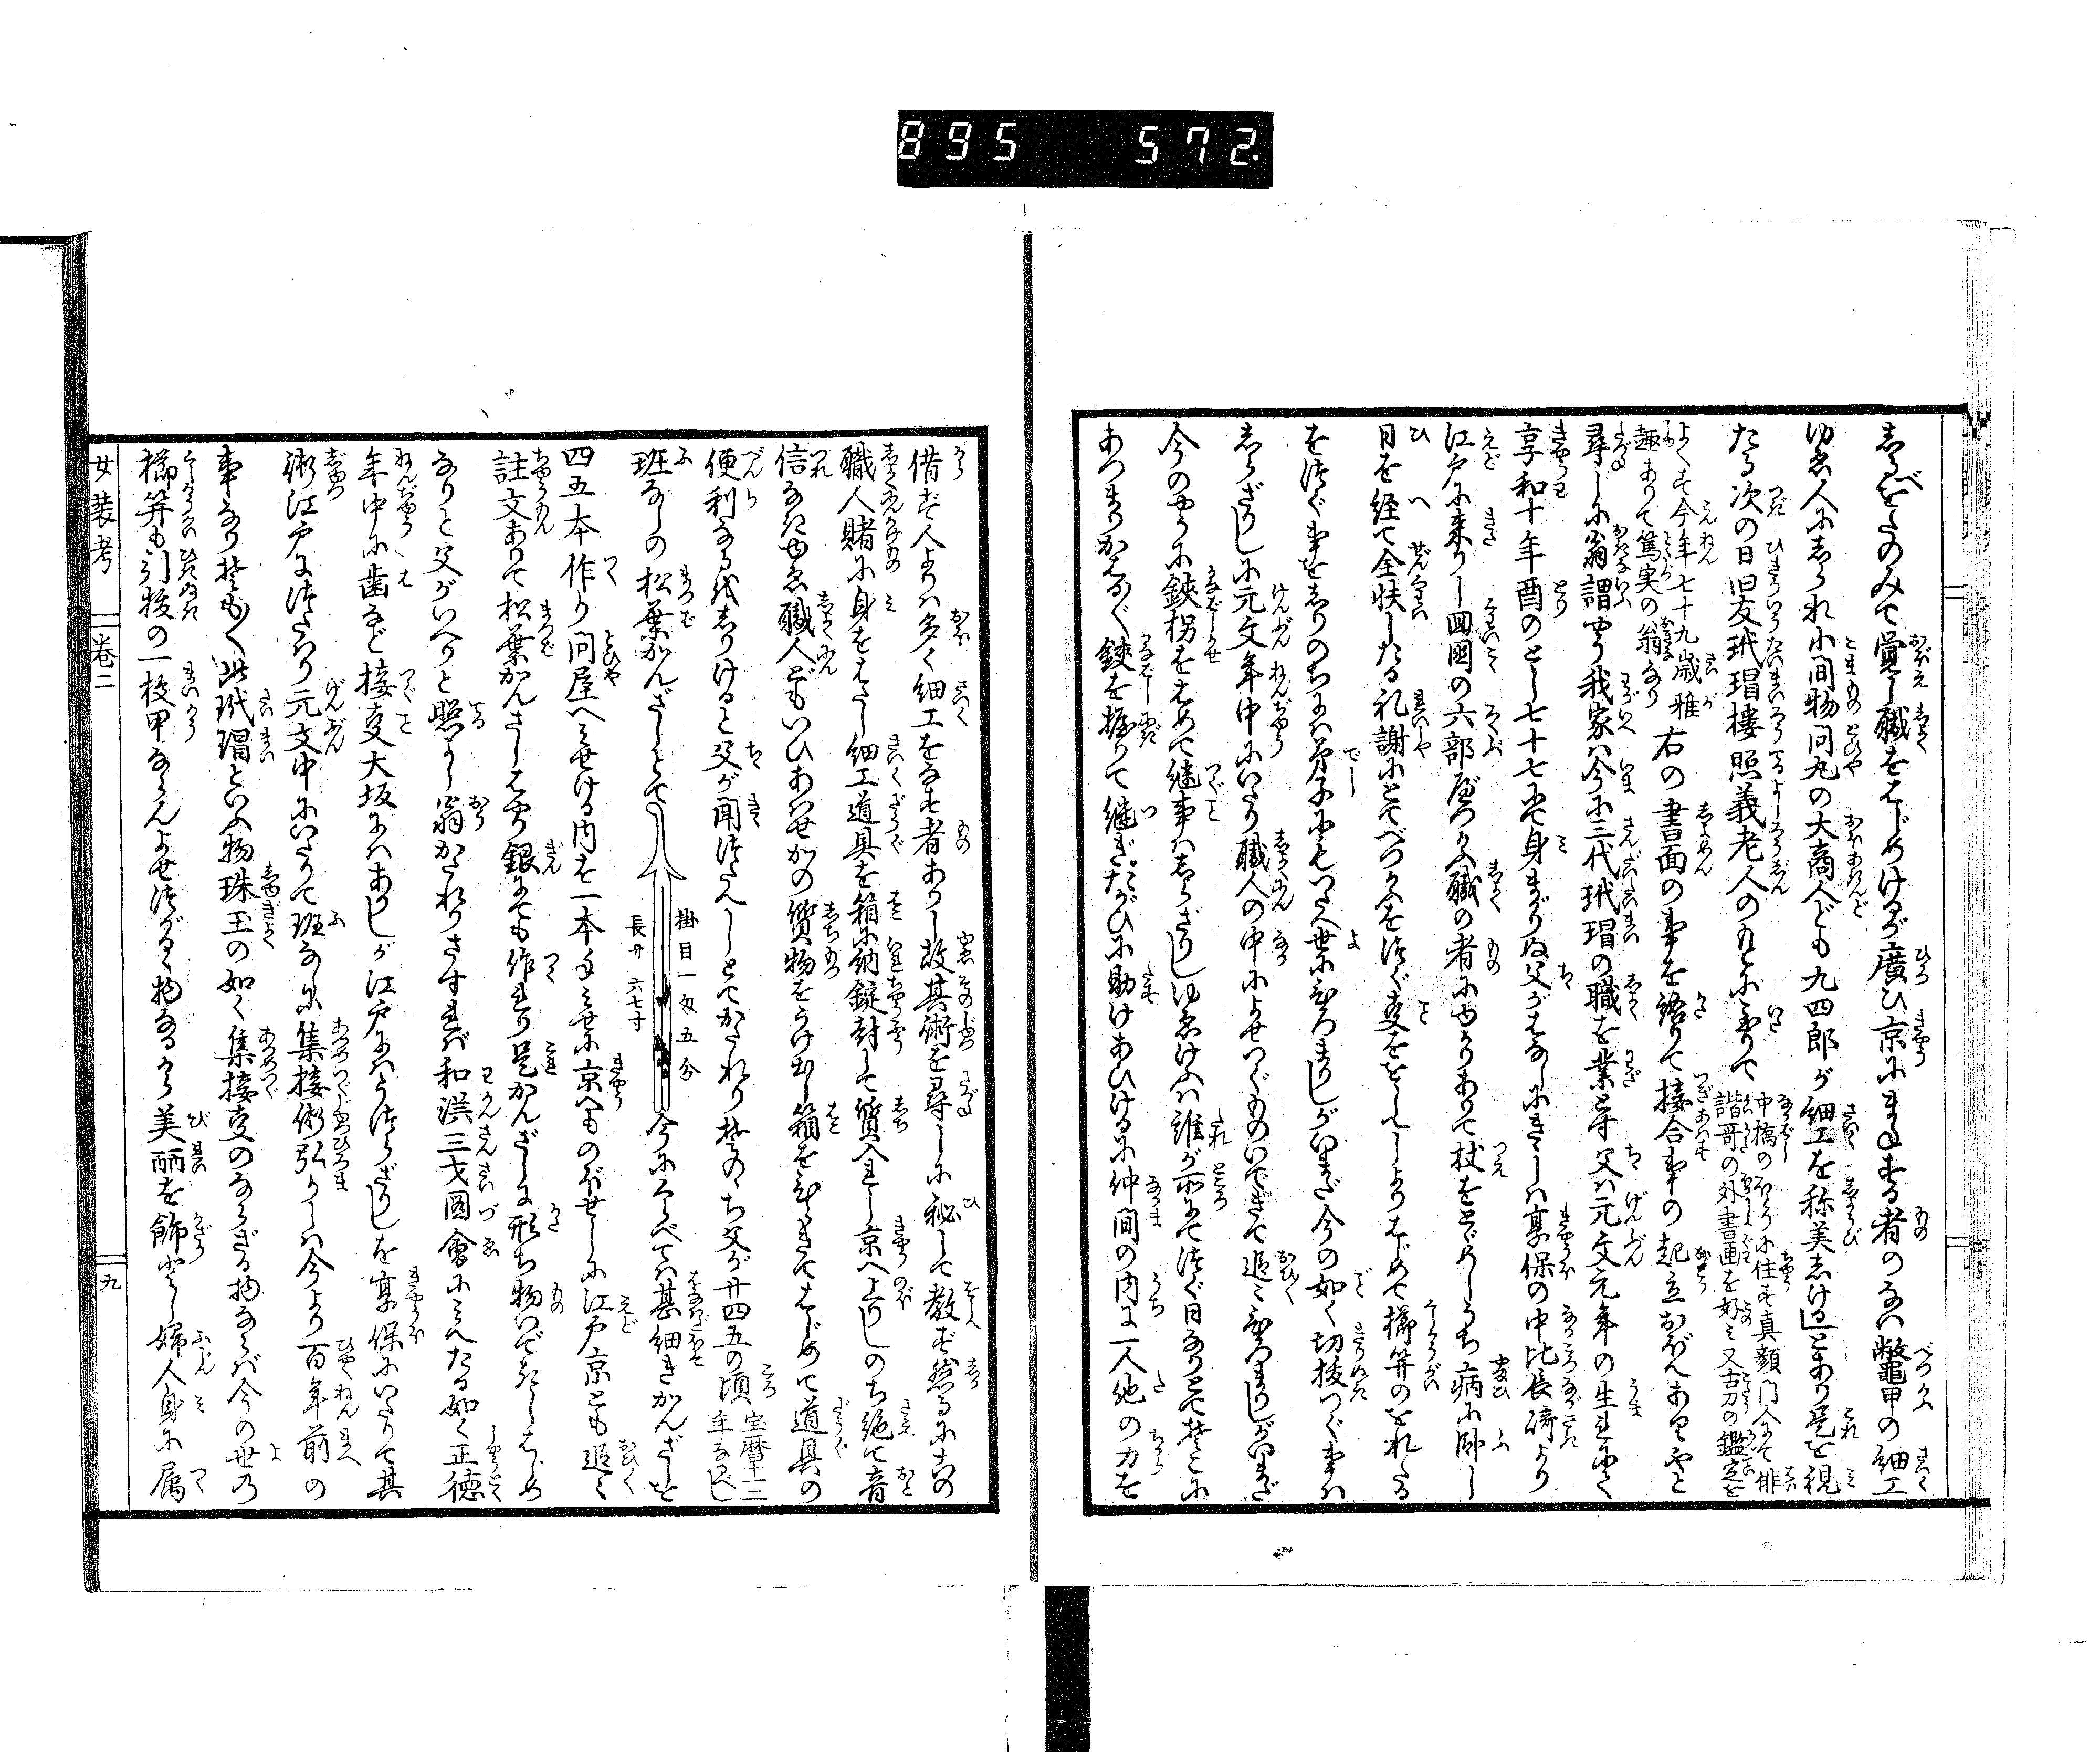 895 572
しるべをたのみて覚し職をはじめけるが廣ひ京にまねする者のなひ鼈甲の細工
ゆゑ人にしられ小間物問丸の大商人ども九四郎が細工を称美しけ」とあり是を視
たる次の日旧友玳瑁樓照義老人のもとに至りて
中橋のほとりに住す真顔門人にて俳
諧哥の外書画を好み又古刀の鑑定を
よくす今年七十九歳雅
趣ありて篤実の翁なり
右の書面の事を語りて接合事の起立おぼえありやと
尋しに翁謂やう我家は今に三代玳瑁の職を業とす父は元文元年の生れにて
享和十年酉のとし七十七にて身まかりぬ父がはなしにきゝしは享保の中比長崎より
江戸に来りし回国の六部べつかふ職の者にゆかりありて杖をとゞめしうち病に臥し
日を経て全快したる礼謝にとてべつかふを注ぐ事ををしへしよりはじめて櫛笄のをれたる
をつぐ事をしりのちには弟子にもつたへ世にひろまりしがいまだ今の如く切拔つぐ事は
しらざりしに元文年中にいたり職人の中によせつぐものいできて追々ひろまりしがいまだ
今のやうに鋏枴をはめて継事はしらざりしゆゑけふは誰が所にて注ぐ日なりとて其家に
あつまりかはる〴〵鋏を握りて継ぎたがひに助けあひけるに仲間の内に一人他の力を
借ず人よりは多く細工をなす者ありし故其術を尋しに秘して教ず然るにその
職人賭に身をはたし細工道具を箱に納錠封して質入れし京へ上りしのち絶て音
信なきゆゑ職人どもいひあはせかの質物をうけ出し箱をひらきてはじめて道具の
便利なるをしりけると父が聞つたへしとてかたれり其のち父が廿四五の頃
宝暦十一二
年なるべし
斑なしの松葉がんざしとて
掛目一匁五分
長サ六七寸
今にくらべては甚細きかんざしを
四五本作り問屋へ見せける内を一本見せに京へものぼせしに江戸京とも追々
註文ありて松葉かんざしはやり銀にても作れり是かんざしに形ち物いできしはじめ
なりと父がいへりと照よし翁かたれりさすれば和漢三才圖會に見へたる如く正徳
年中に歯など接事大坂にはありしが江戸にはうつらざりしを享保にいたりて其
術江戸につたはり元文中にいたりて斑なしに集接術弘りしは今より百年前の
事なりけり此玳瑁といふ物珠玉の如く集接事のならざる物ならば今の世乃
櫛笄も引拔の一枚甲ならんよせつがるゝ物なるから美麗を飾とし婦人身に属
女装考
卷二
九